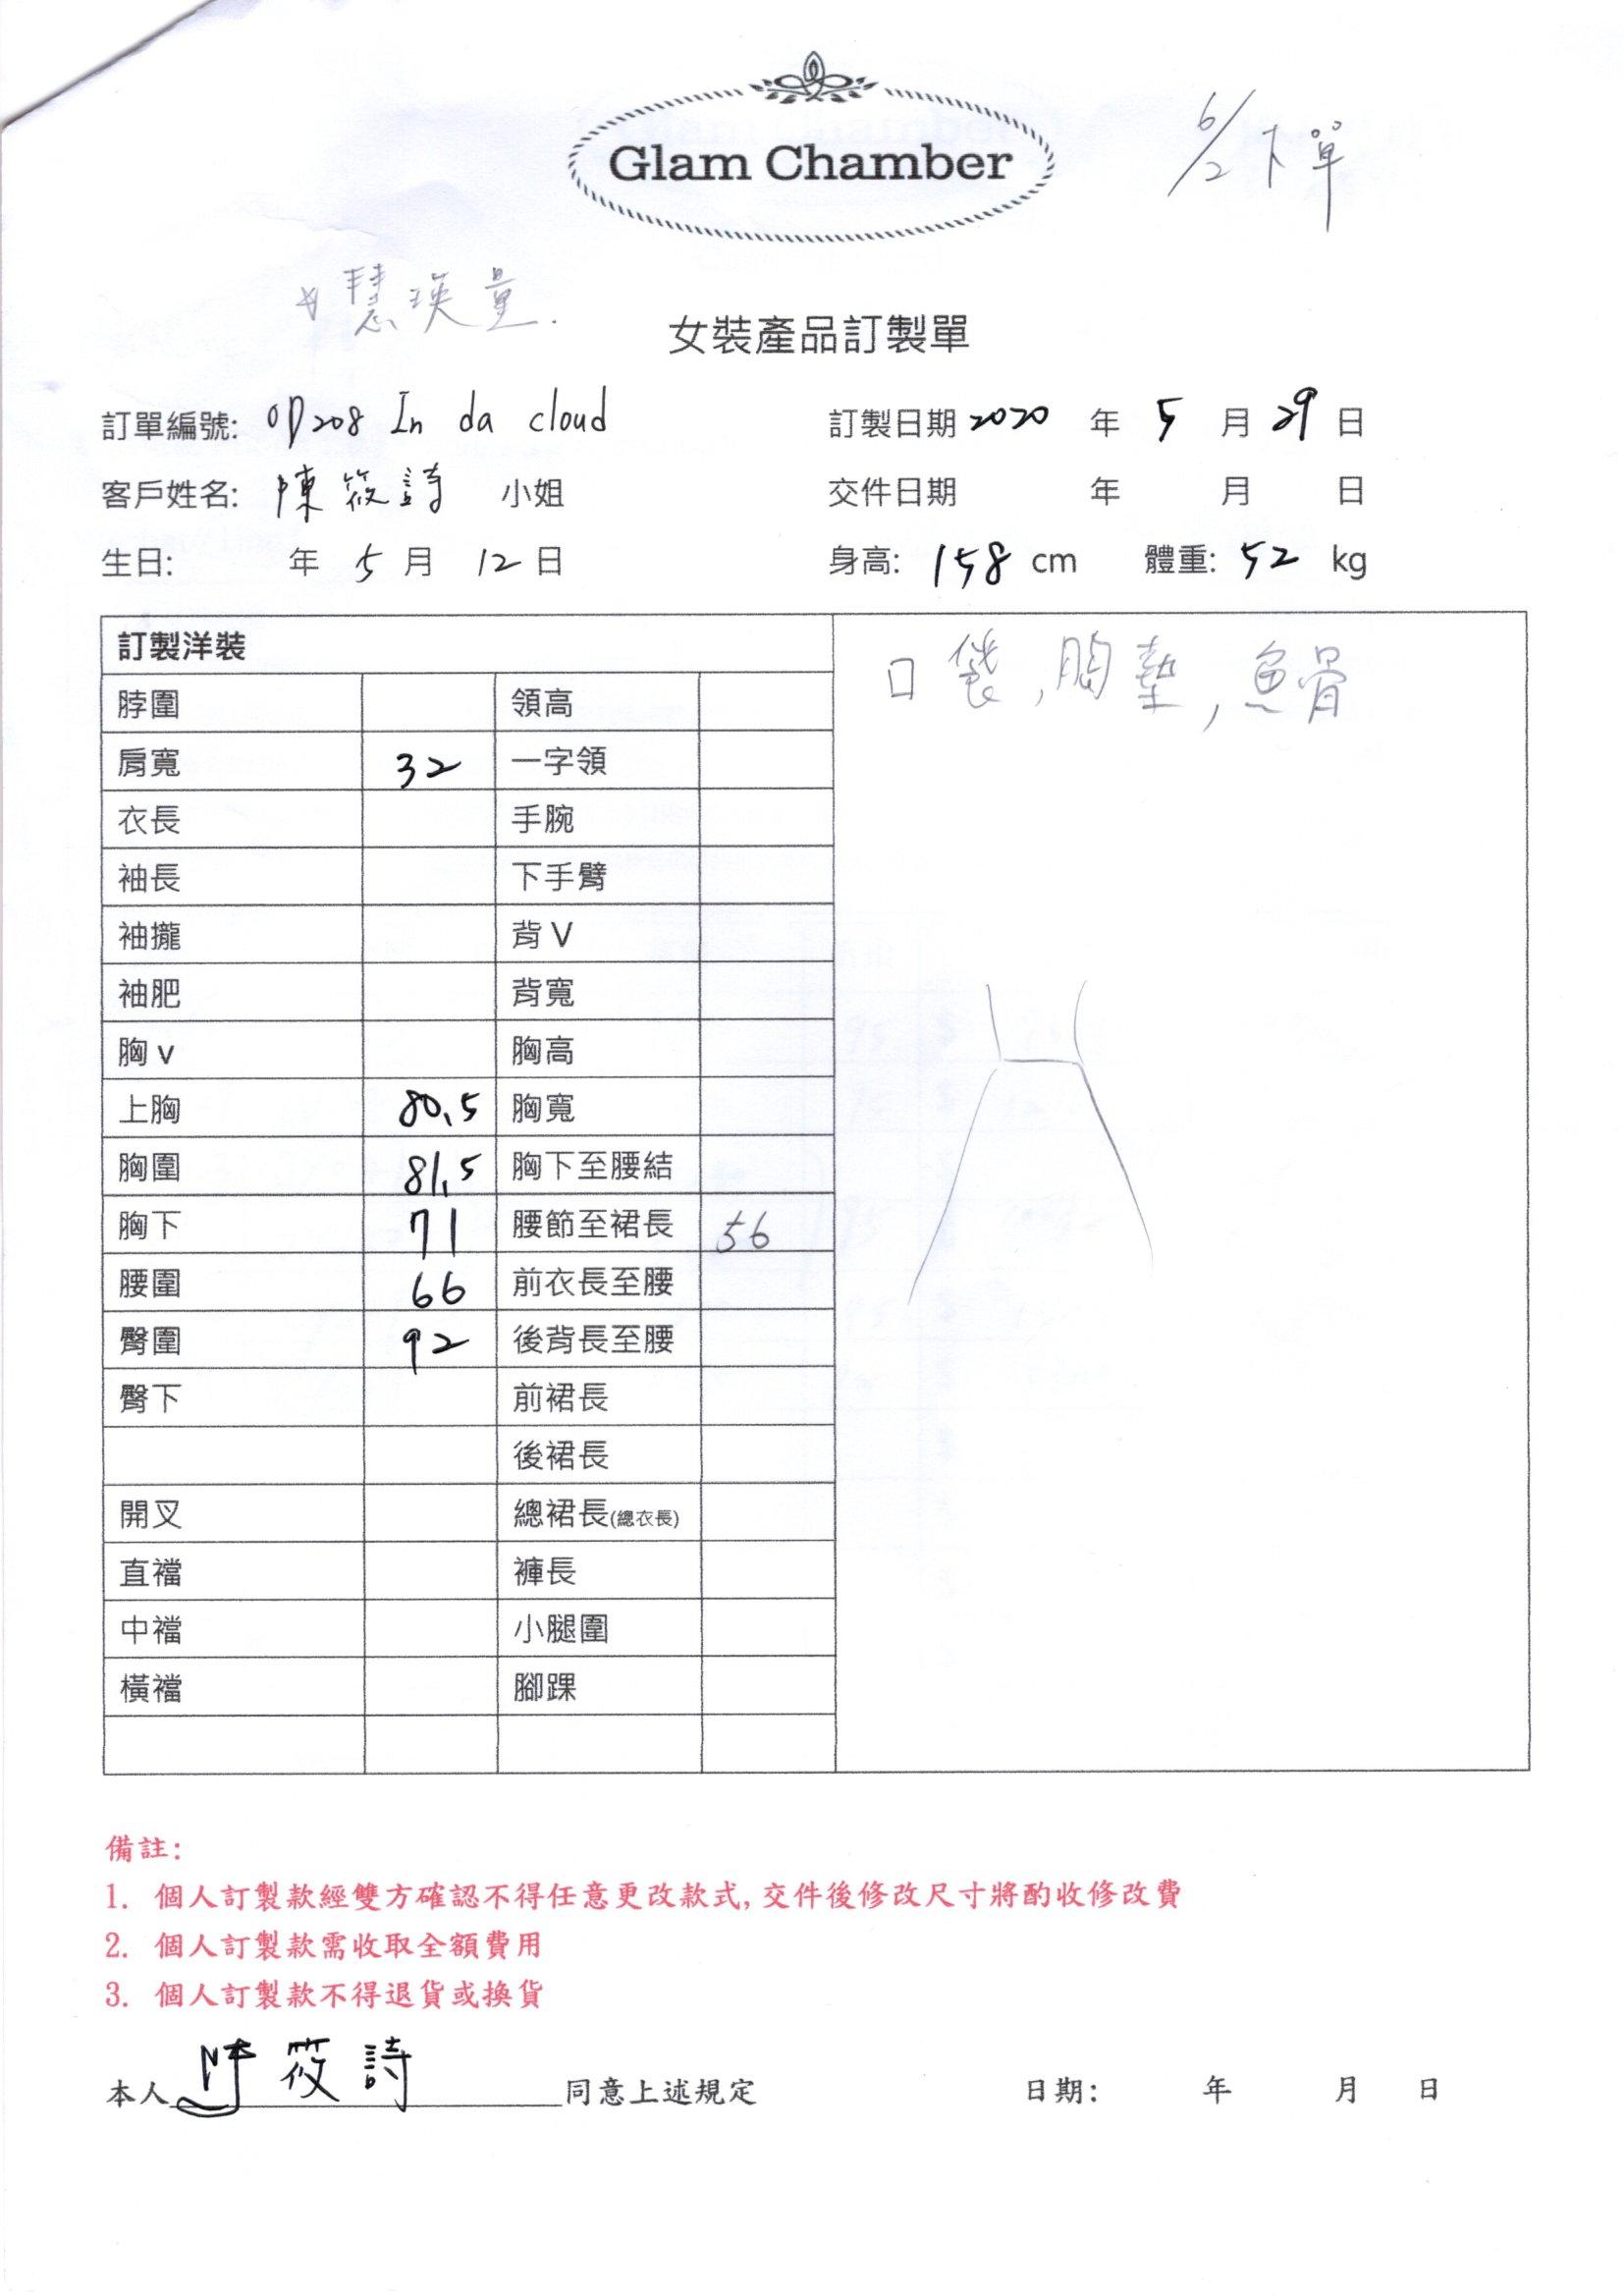 Glam Chamber
6/2 下單
*慧瑛量.
女裝產品訂製單
訂單編號: OP208 In da cloud 訂製日期 2020 年 5 月 29 日
客戶姓名: 陳筱詩 小姐 交件日期 年 月 日
生日: 年 5 月 12 日 身高: 158 cm 體重: 52 kg
訂製洋裝
口袋,胸墊,魚骨
脖圍 領高
肩寬 32 一字領
衣長 手腕
袖長 下手臂
袖攏 背 V
袖肥 背寬
胸 v 胸高
上胸 80.5 胸寬
胸圍 81.5 胸下至腰結
胸下 71 腰節至裙長 56
腰圍 66 前衣長至腰
臀圍 92 後背長至腰
臀下 前裙長
後裙長
開叉 總裙長(總衣長)
直襠 褲長
中襠 小腿圍
橫襠 腳踝
備註:
1. 個人訂製款經雙方確認不得任意更改款式,交件後修改尺寸將酌收修改費
2. 個人訂製款需收取全額費用
3. 個人訂製款不得退貨或換貨
本人 陳筱詩 同意上述規定 日期: 年 月 日